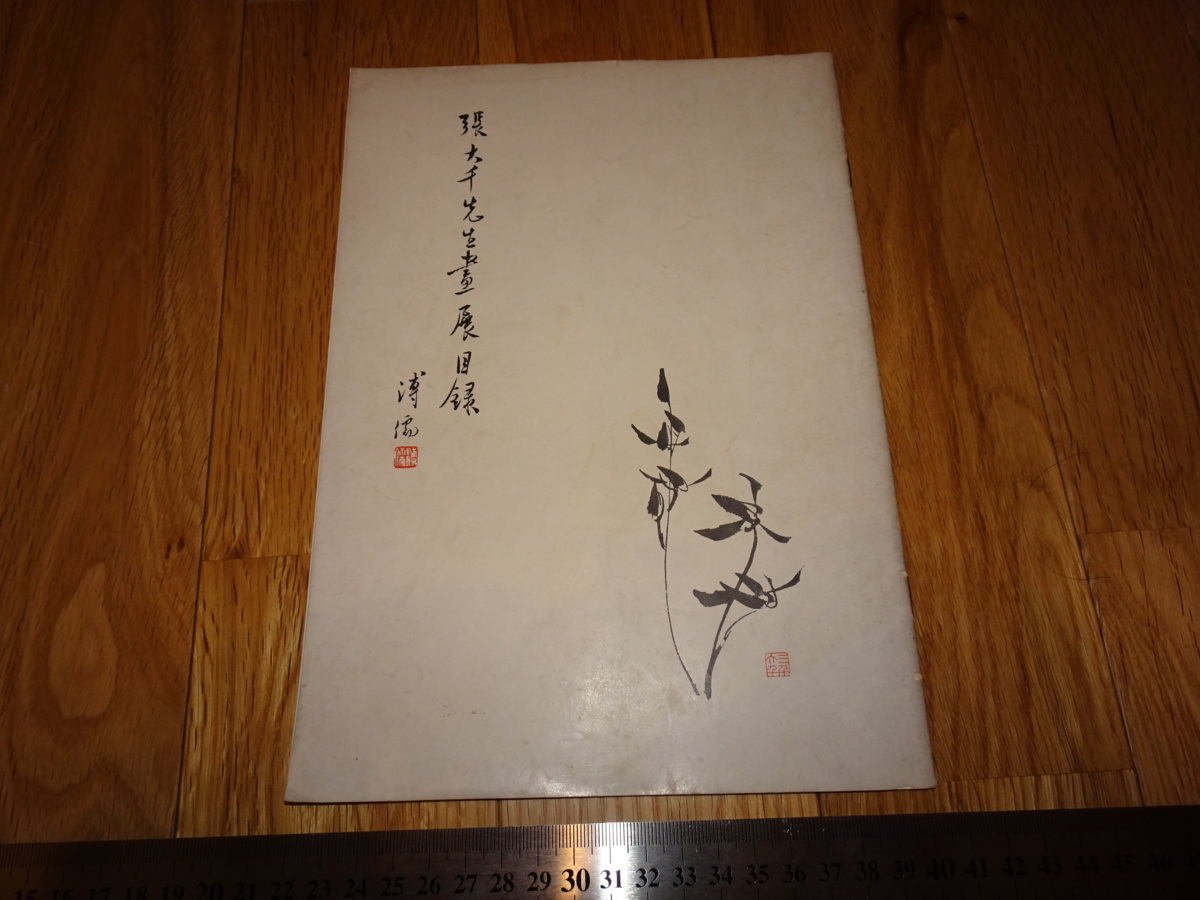 張大千先生畫展目錄
溥儒
15 16 17 18 19 20 21 22 23 24 25 26 27 28 29 30 31 32 33 34 35 36 37 38 39 40 41 42 43 44 45 46